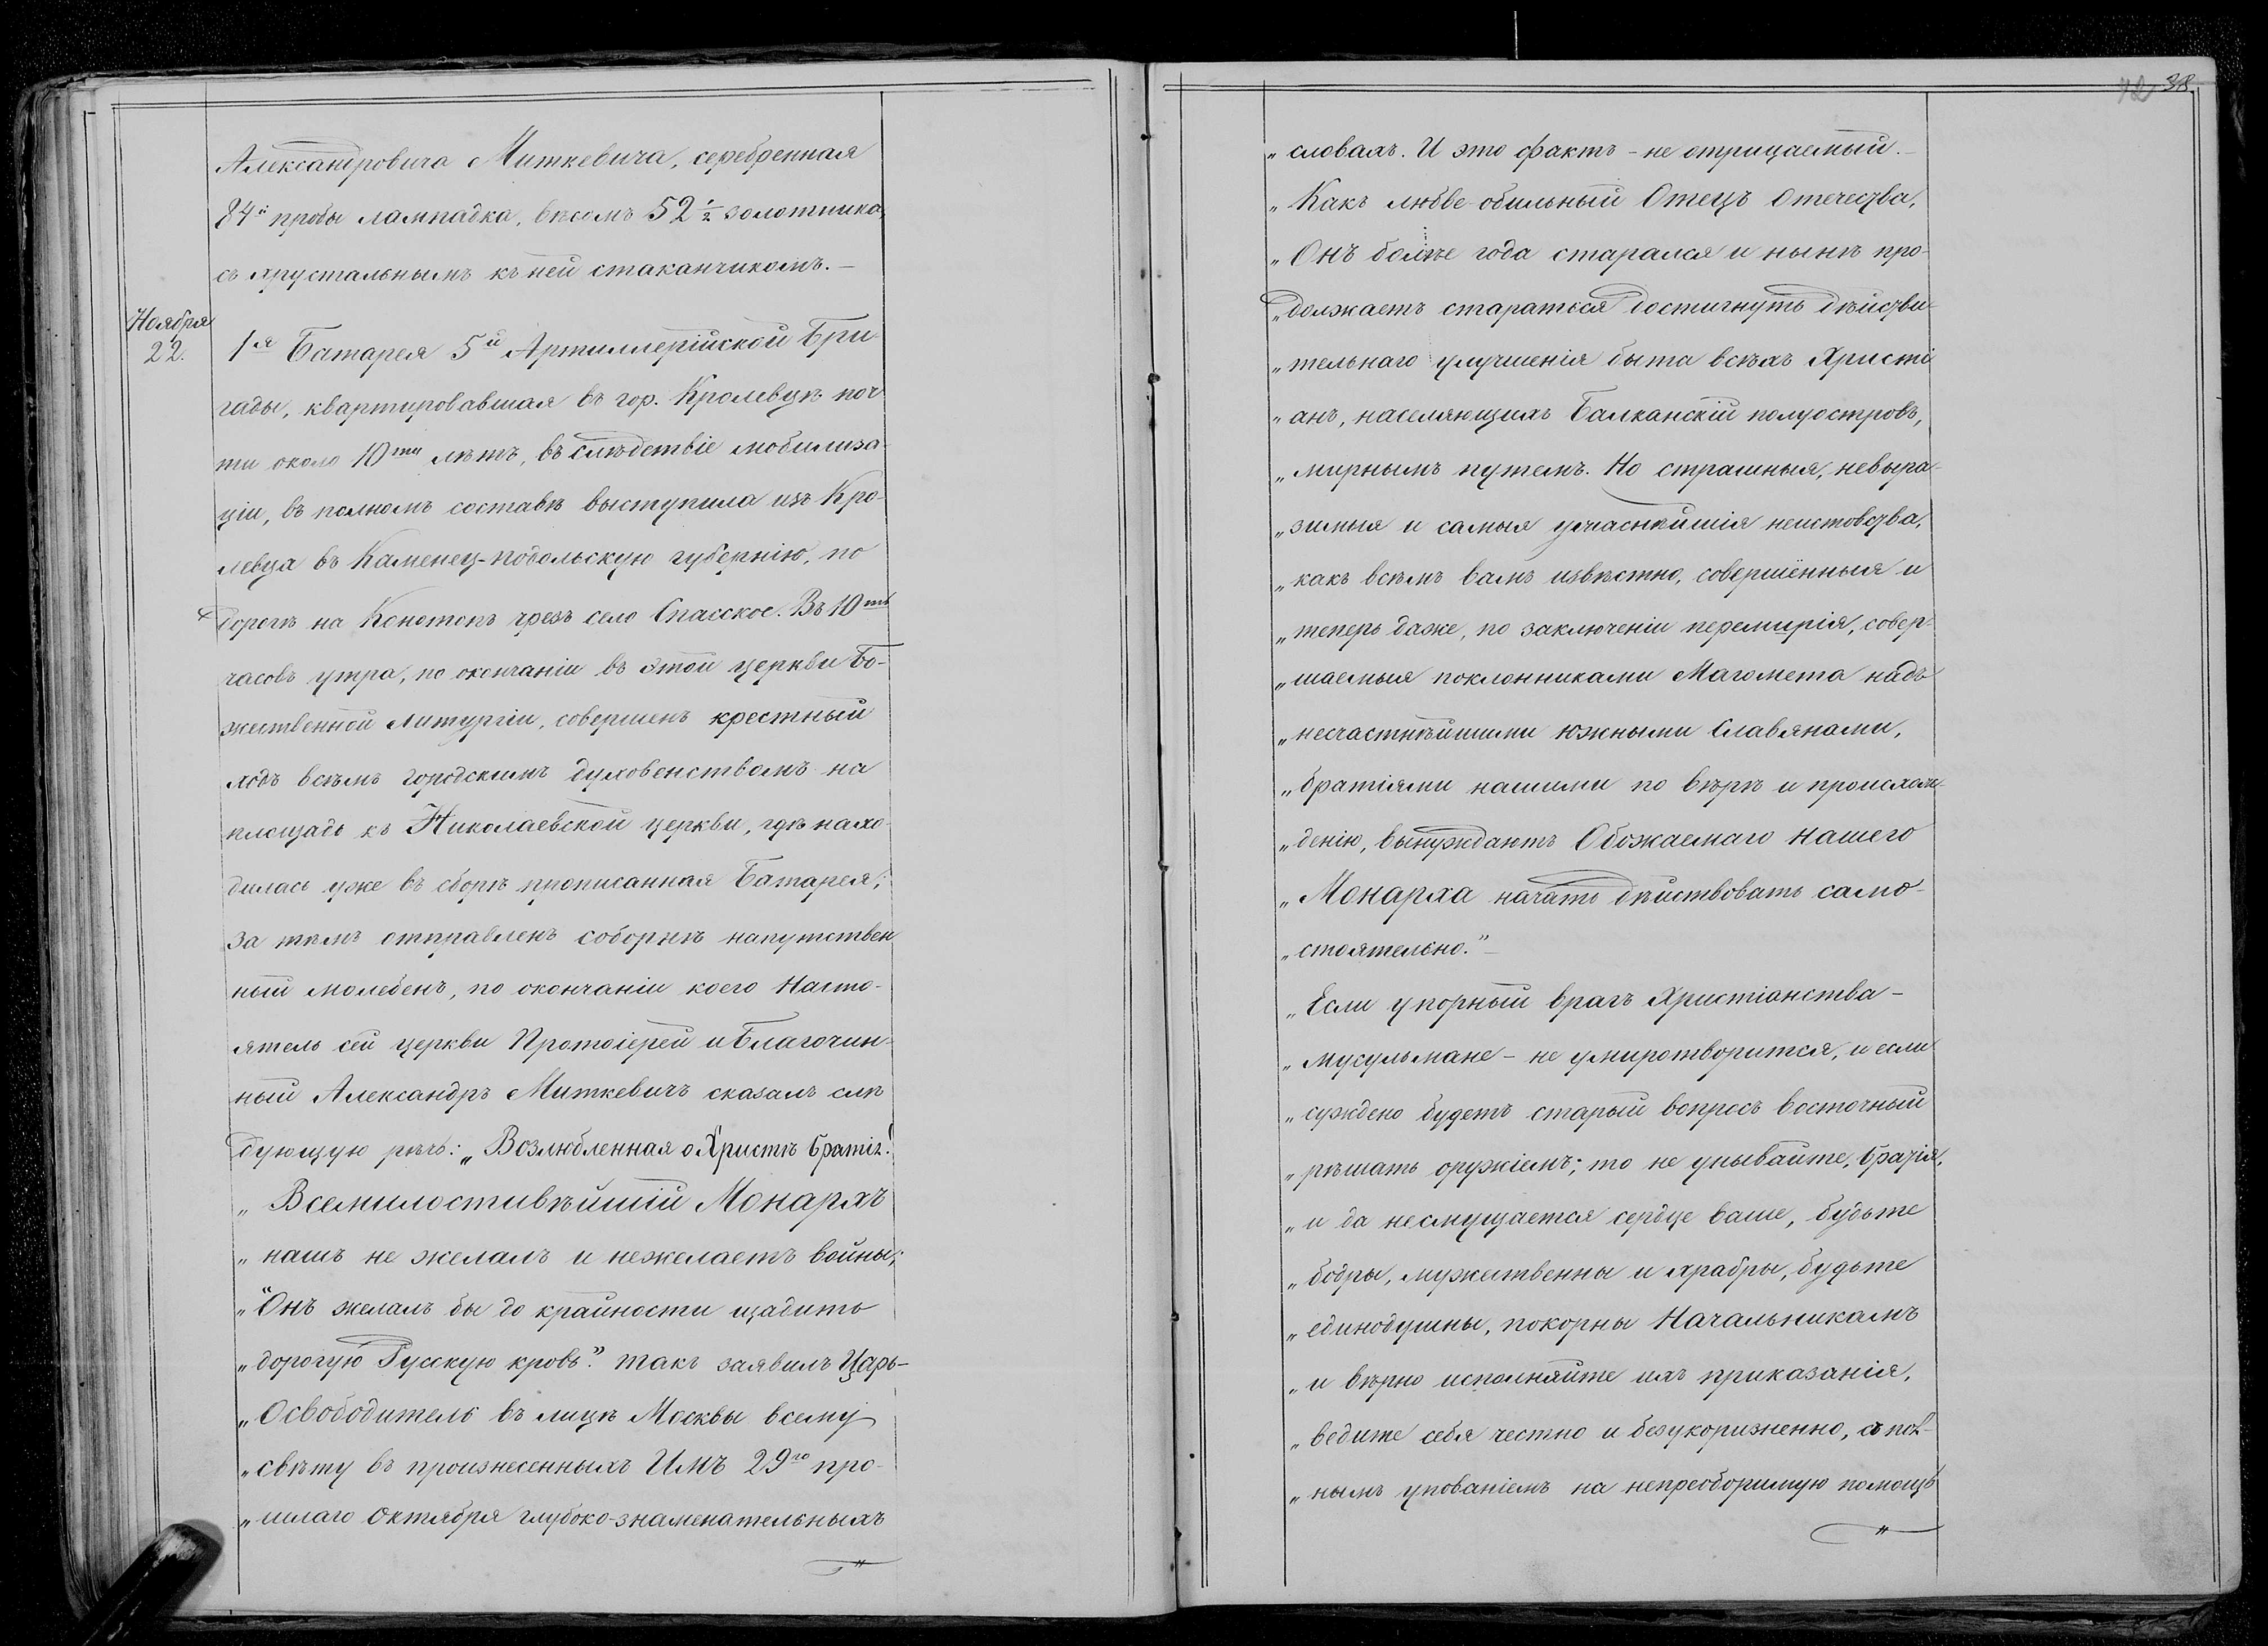 Александровича Миткевича, серебренная
84й пробы лампадка, вѣсомъ 52 1/2 золотника,
съ хрустальнымъ къ ней стаканчикомъ.—
Ноября
22.
1я Батарея 5й Артиллерійской Бри-
гады, квартировавшая въ гор. Кролевцѣ поч
ти около 10ти лѣтъ, въ слѣдствіе мобилиза-
ціи, въ полномъ составѣ выступила изъ Кро-
левца въ Каменец-подольскую губернію, по
дорогѣ на Конотопъ чрезъ село Спасское. Въ 10ть
часовъ утра, по окончаніи въ этой церкви Бо-
жественной Литургіи, совершенъ крестный
ходъ всѣмъ городскимъ духовенствомъ на
площадь къ Николаевской церкви, гдѣ нахо-
дилась уже въ сборѣ прописанная Батарея;
за тѣмъ отправленъ соборнѣ напутствен
ный молебенъ, по окончаніи коего Насто-
ятель сей церкви Протоіерей и Благочин-
ный Александръ Миткевичъ сказалъ слѣ
дующую рѣчь: „Возлюбленная о Христѣ братіе!
„Всемилостивѣйшій Монархъ
„нашъ не желалъ и нежелаетъ войны;
„"Онъ желалъ бы до крайности щадить
„дорогую Русскую кровь". такъ заявилъ Царь-
„Освободитель въ лицѣ Москвы всему
„свѣту въ произнесенныхъ Имъ 29го про-
„шлаго Октября глубоко-знаменательныхъ
„
72 38.
„словахъ. И это фактъ - не отрицаемый.—
„Какъ любве-обильный Отецъ Отечества,
„Онъ болѣе года старался и нынѣ про-
„должаетъ стараться достигнуть дѣйстви-
„тельнаго улучшенія быта всѣхъ Христі
„анъ, населяющихъ Балканскій полуостровъ,
„мирнымъ путемъ. Но страшныя, невыра-
„зимыя и самыя ужаснѣйшія неистовства,
„какъ всѣмъ вамъ извѣстно, совершённыя и
„теперь даже, по заключеніи перемирія, совер-
„шаемыя поклонниками Магомета надъ
„несчастнѣйшими южными Славянами,
„братіями нашими по вѣрѣ и происхож-
„денію, вынуждаютъ Обожаемаго нашего
„Монарха начать дѣйствовать само-
„стоятельно."—
„Если упорный врагъ Христіанства -
„мусульмане - не умиротворится, и если
„суждено будетъ старый вопросъ восточный
„рѣшать оружіемъ; то не унывайте, братія,
„и да несмущается сердце ваше, будьте
„бодры, мужественны и храбры, будьте
„единодушны, покорны Начальникамъ
„и вѣрно исполняйте ихъ приказанія,
„ведите себя честно и безукоризненно, съ пол-
„нымъ упованіемъ на непреоборимую помощь
„